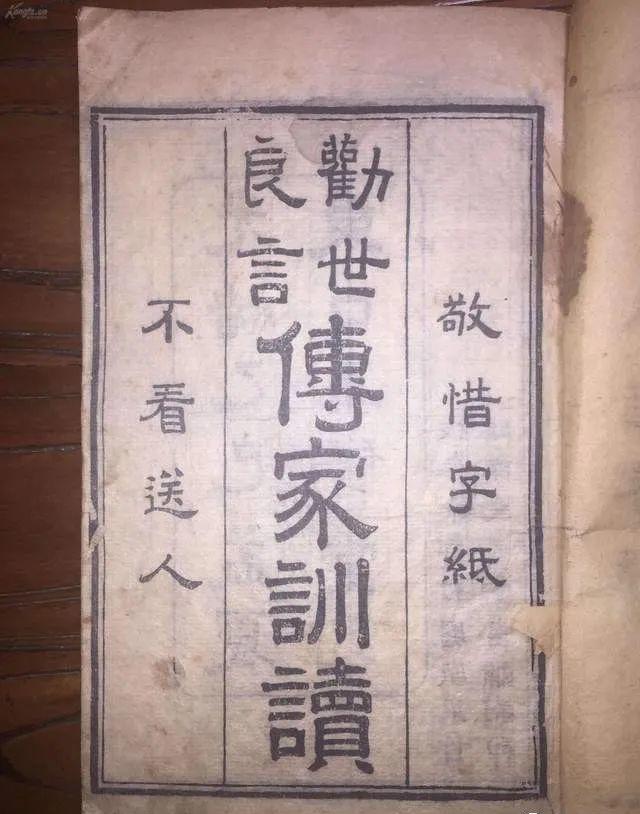 敬惜字紙
勸世
良言
傳家訓讀
不看送人